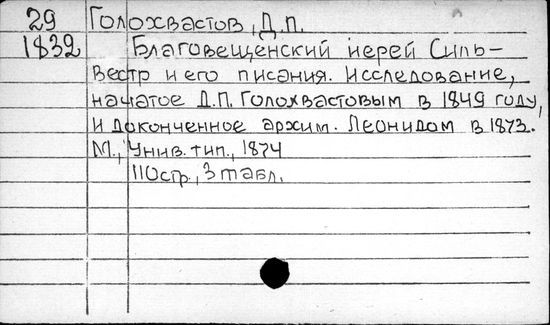 29 Голохвастов, Д.П.
1832 Благовещенский иерей Силь-
вестр и его писания. Исследование,
начатое Д.П. Голохвастовым в 1849 году,
и доконченное архим. Леонидом в 1873.
М., Унив. тип., 1874
110стр., 3 табл.